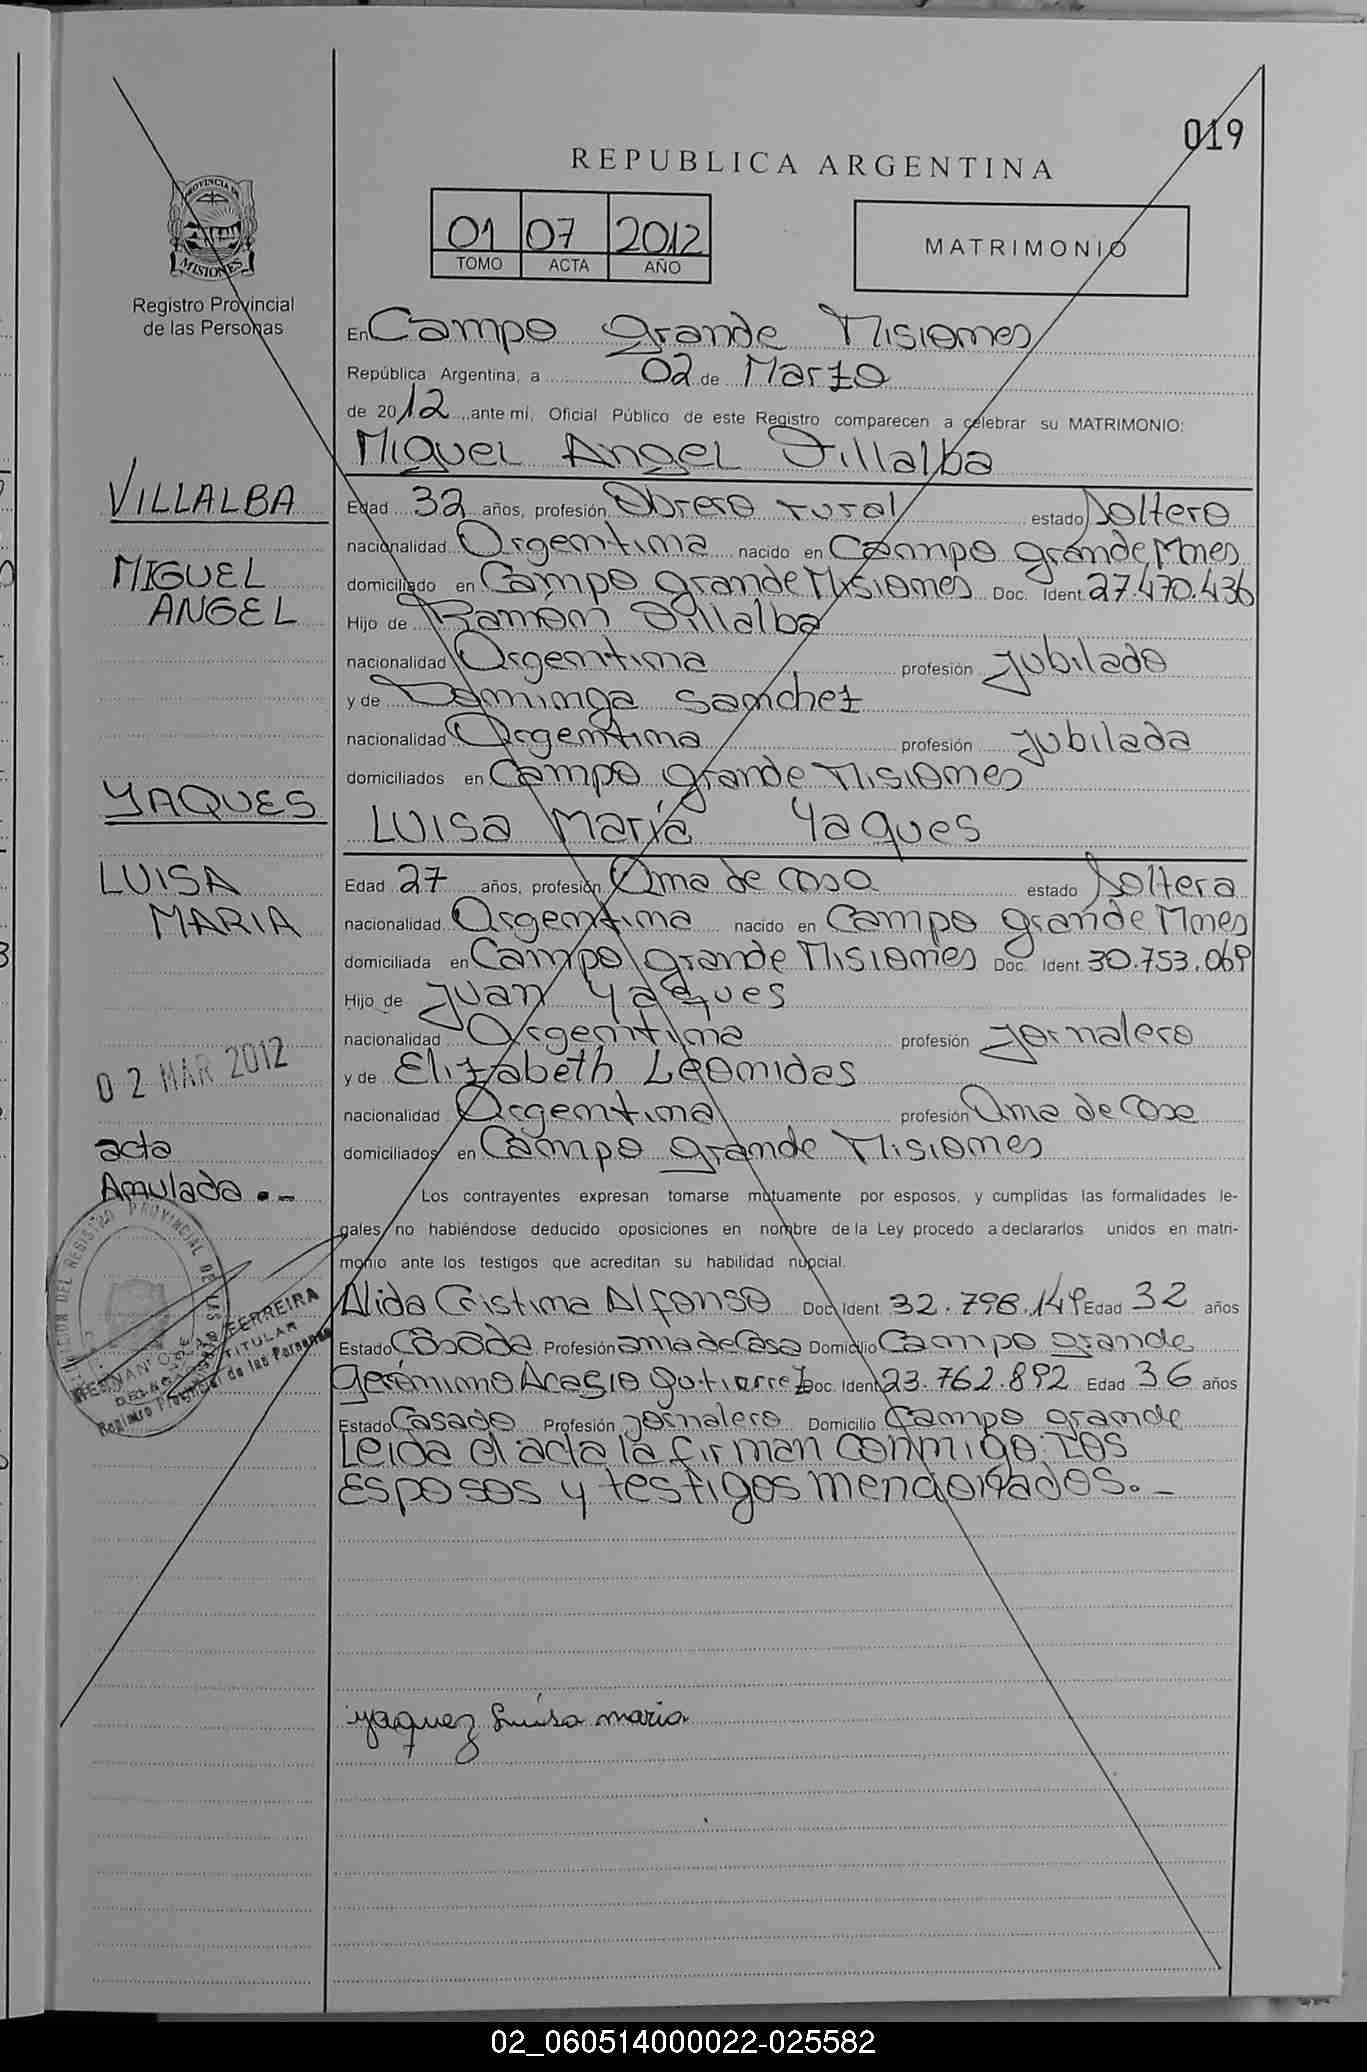 019
REPUBLICA ARGENTINA
01 07 2012
TOMO ACTA AÑO
MATRIMONIO
PROVINCIA DE
MISIONES
Registro Provincial
de las Personas
En Campo Grande Misiones
República Argentina, a 02 de Marzo
de 2012 ante mí, Oficial Público de este Registro comparecen a celebrar su MATRIMONIO:
Miguel Angel Villalba
VILLALBA
MIGUEL
ANGEL
Edad 32 años, profesión Obrero rural estado Soltero
nacionalidad Argentina nacido en Campo Grande, Mnes
domiciliado en Campo Grande Misiones Doc. Ident. 27.470.436
Hijo de Ramón Villalba
nacionalidad Argentina profesión Jubilado
y de Dominga Sanchez
nacionalidad Argentina profesión Jubilada
domiciliados en Campo Grande Misiones
YAQUES
LUISA
MARIA
Luisa María Yaques
Edad 27 años, profesión Ama de casa estado Soltera
nacionalidad Argentina nacido en Campo Grande Mnes
domiciliada en Campo Grande Misiones Doc. Ident. 30.753.069
Hijo de Juan Yaques
nacionalidad Argentina profesión Jornalero
y de Elizabeth Leonidas
nacionalidad Argentina profesión Ama de Casa
domiciliados en Campo Grande Misiones
02 MAR 2012
acta
Anulada.-
Los contrayentes expresan tomarse mutuamente por esposos, y cumplidas las formalidades le-
gales no habiéndose deducido oposiciones en nombre de la Ley procedo a declararlos unidos en matri-
monio ante los testigos que acreditan su habilidad nupcial.
Alida Cristina Alfonso Doc. Ident. 32.798.149 Edad 32 años
Estado Casada Profesión ama de Casa Domicilio Campo Grande
Gerónimo Acasio Gutierrez Doc. Ident. 23.762.892 Edad 36 años
Estado Casado Profesión Jornalero Domicilio Campo Grande
Leida el acta la firman conmigo los
Esposos y testigos mencionados.-
DEL REGISTRO PROVINCIAL DE LAS
FERREIRA
TITULAR
Registro Provincial de las Personas
yaquez Luisa maria
02_060514000022-025582